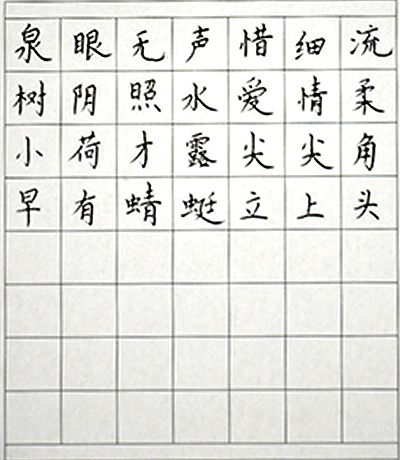 泉眼无声惜细流
树阴照水爱情柔
小荷才露尖尖角
早有蜻蜓立上头